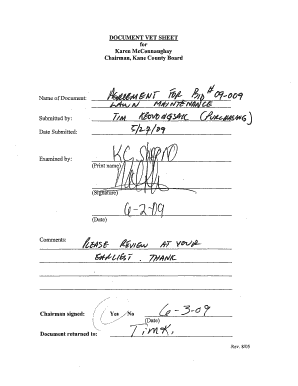 DOCUMENT VET SHEET
for
Karen McConnaughay
Chairman, Kane County Board
Name of Document: AGREEMENT FOR BID# 09-009
LAWN MAINTENANCE
Submitted by: TIM KEOVONGSAK (PURCHASING)
Date Submitted: 5/29/09
Examined by:
(Print name)
(Signature)
6-2-09
(Date)
Comments: PLEASE REVIEW AT YOUR
EARLIEST. THANK
Chairman signed: Yes No 6-3-09
(Date)
Document returned to: TimK.
Rev. 8/05